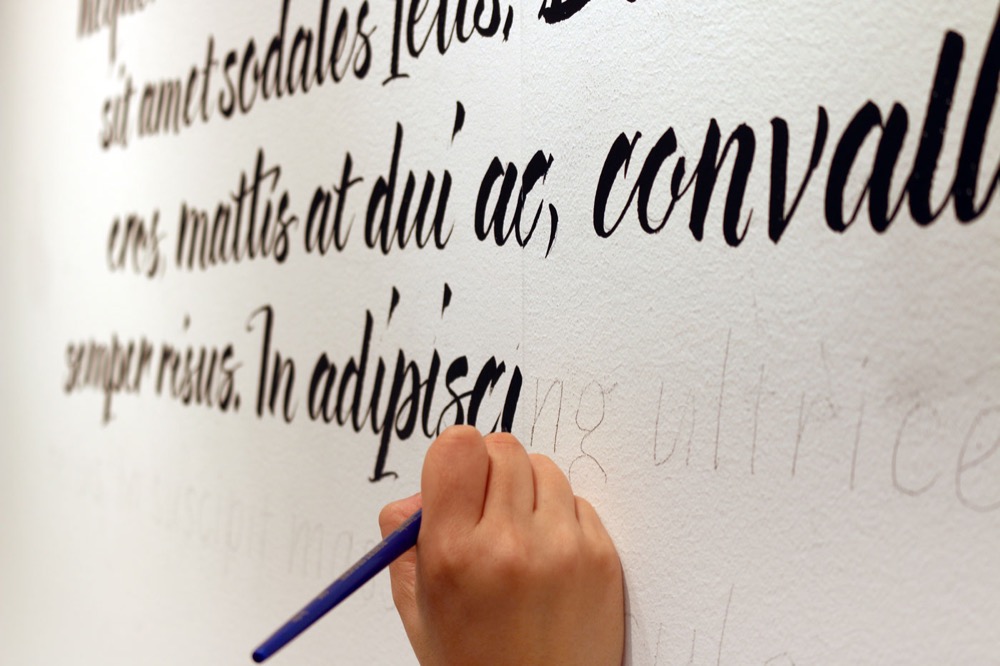 neque
sit amet sodales felis,
eros, mattis at dui ac, convall
semper risus. In adipiscing ultrice
suscipit ma